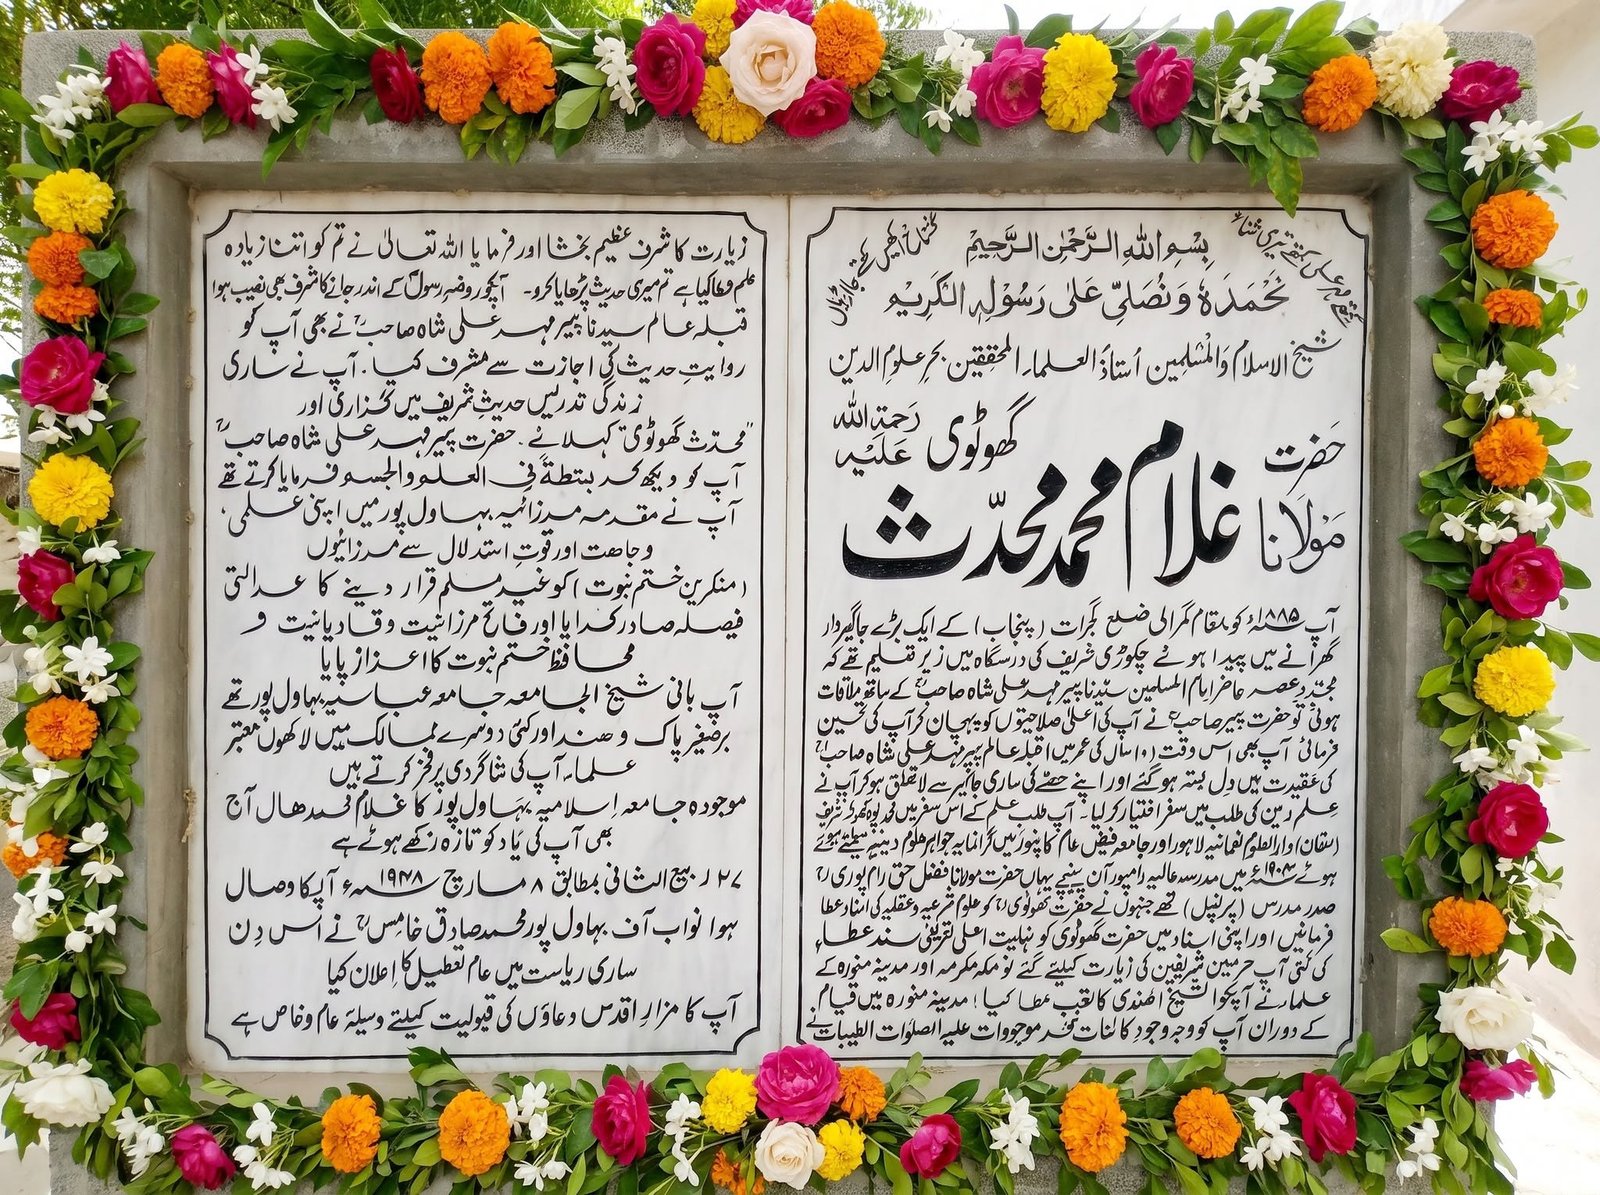 بِسْمِ اللهِ الرَّحْمٰنِ الرَّحِيْمِ
نَحْمَدُهٗ وَنُصَلِّیْ عَلٰی رَسُوْلِهِ الْكَرِيْمِ
شیخ الاسلام وَالْمُسْلِمِین اُستاذُ العلماء المحققین بحرِ علوم الدین
حَضرت مَوْلَانا غلام محمد محدّث گھوٹوی رَحمۃ اللہ عَلَیْہ
آپ ۱۸۸۵ء کو بمقام گمرالی ضلع گجرات (پنجاب) کے ایک بڑے جاگیردار
گھرانے میں پیدا ہوئے چکوڑی شریف کی درسگاہ میں زیرِ تعلیم تھے کہ
مجدّدِ عصر حاضر امام المسلمین سیّدنا پیر مہر علی شاہ صاحبؒ کے ساتھ ملاقات
ہوئی تو حضرت پیر صاحبؒ نے آپ کی اعلیٰ صلاحیتوں کو پہچان کر آپ کی تحسین
فرمائی آپ بھی اس وقت (۱۰ سال کی عمر میں) قبلہ عالم پیر مہر علی شاہ صاحبؒ
کی عقیدت میں دِل بستہ ہو گئے اور اپنے حصّے کی ساری جاگیر سے لاتعلق ہو کر آپ نے
علمِ دین کی طلب میں سفر اختیار کر لیا۔ آپ طلب علم کے اس سفر میں شریف
(ملتان) دارالعلوم نعمانیہ لاہور اور جامعہ فیض عام کانپور میں گرانمایہ جواہر علوم دینیہ سمیٹتے ہوئے
ہوئے ۱۹۰۴ء میں مدرسہ عالیہ رامپور آن پہنچے یہاں حضرت مولانا فضل حق رام پوریؒ
صدر مدرس (پرنسپل) تھے جنہوں نے حضرت گھوٹویؒ کو علوم شرعیہ و عقلیہ کی اسناد عطا
فرمائیں اور اپنی اسناد میں حضرت گھوٹوی کو نہایت اعلیٰ تعریفی سند عطاء
کی گئی آپ حرمین شریفین کی زیارت کیلئے گئے تو مکہ مکرمہ اور مدینہ منورہ کے
علماء نے آپکو الشیخ الھندی کا لقب عطا کیا؛ مدینہ منورہ میں قیام
کے دوران آپ کو وجہِ وجودِ کائنات فخرِ موجودات علیہ الصلوات الطیبات نے
زیارت کا شرف عظیم بخشا اور فرمایا اللہ تعالیٰ نے تم کو اتنا زیادہ
علم عطا کیا ہے تم میری حدیث پڑھایا کرو۔ آپکو روضۂ رسولؐ کے اندر جانے کا شرف بھی نصیب ہوا
قبلہ عالم سیدنا پیر مہر علی شاہ صاحبؒ نے بھی آپ کو
روایتِ حدیث کی اجازت سے مشرف کیا۔ آپ نے ساری
زندگی تدریس حدیثِ شریف میں گزاری اور
"محدّث گھوٹوی" کہلائے۔ حضرت پیر مہر علی شاہ صاحبؒ
آپ کو دیکھ کر بسطۃً فی العلم والجسم فرمایا کرتے تھے
آپ نے مقدمہ مرزائیہ بہاول پور میں اپنی علمی،
وجاھت اور قوتِ استدلال سے مرزائیوں
(منکرین ختم نبوت) کو غیر مسلم قرار دینے کا عدالتی
فیصلہ صادر کرایا اور فاتح مرزائیت وقادیانیت و
محافظ ختم نبوت کا اعزاز پایا
آپ بانی شیخ الجامعہ جامعہ عباسیہ بہاول پور تھے
برصغیر پاک و ھند اور کئی دوسرے ممالک میں لاکھوں معتبر
علماء آپ کی شاگردی پر فخر کرتے ہیں
موجودہ جامعہ اسلامیہ بہاول پور کا غلام محمد ھال آج
بھی آپ کی یاد کو تازہ رکھے ہوئے ہے
۲۷ ربیع الثانی بمطابق ۸ مارچ ۱۹۴۸ء آپ کا وصال
ہوا نواب آف بہاول پور محمد صادق خامسؒ نے اس دِن
ساری ریاست میں عام تعطیل کا اعلان کیا
آپ کا مزارِ اقدس دعاؤں کی قبولیت کیلئے وسیلۂ عام وخاص ہے